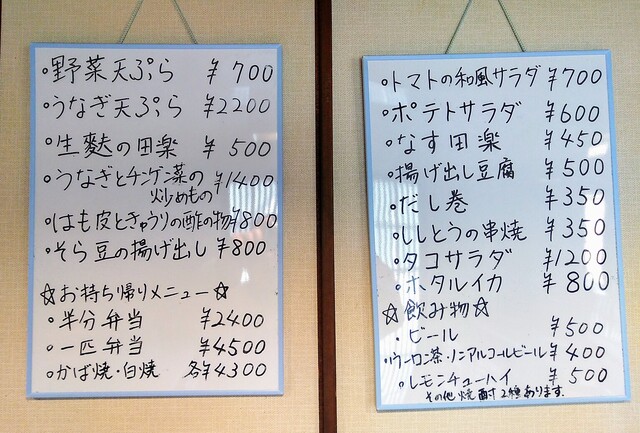 ・野菜天ぷら ¥700
・うなぎ天ぷら ¥2200
・生麩の田楽 ¥500
・うなぎとチンゲン菜の炒めもの ¥1400
・はも皮ときゅうりの酢の物 ¥800
・そら豆の揚げ出し ¥800
☆お持ち帰りメニュー☆
・半分弁当 ¥2400
・一匹弁当 ¥4500
・かば焼・白焼 各¥4300
・トマトの和風サラダ ¥700
・ポテトサラダ ¥600
・なす田楽 ¥450
・揚げ出し豆腐 ¥500
・だし巻 ¥350
・ししとうの串焼 ¥350
・タコサラダ ¥1200
・ホタルイカ ¥800
☆飲み物☆
・ビール ¥500
・ウーロン茶・ノンアルコールビール ¥400
・レモンチューハイ ¥500
その他焼酎2種あります。